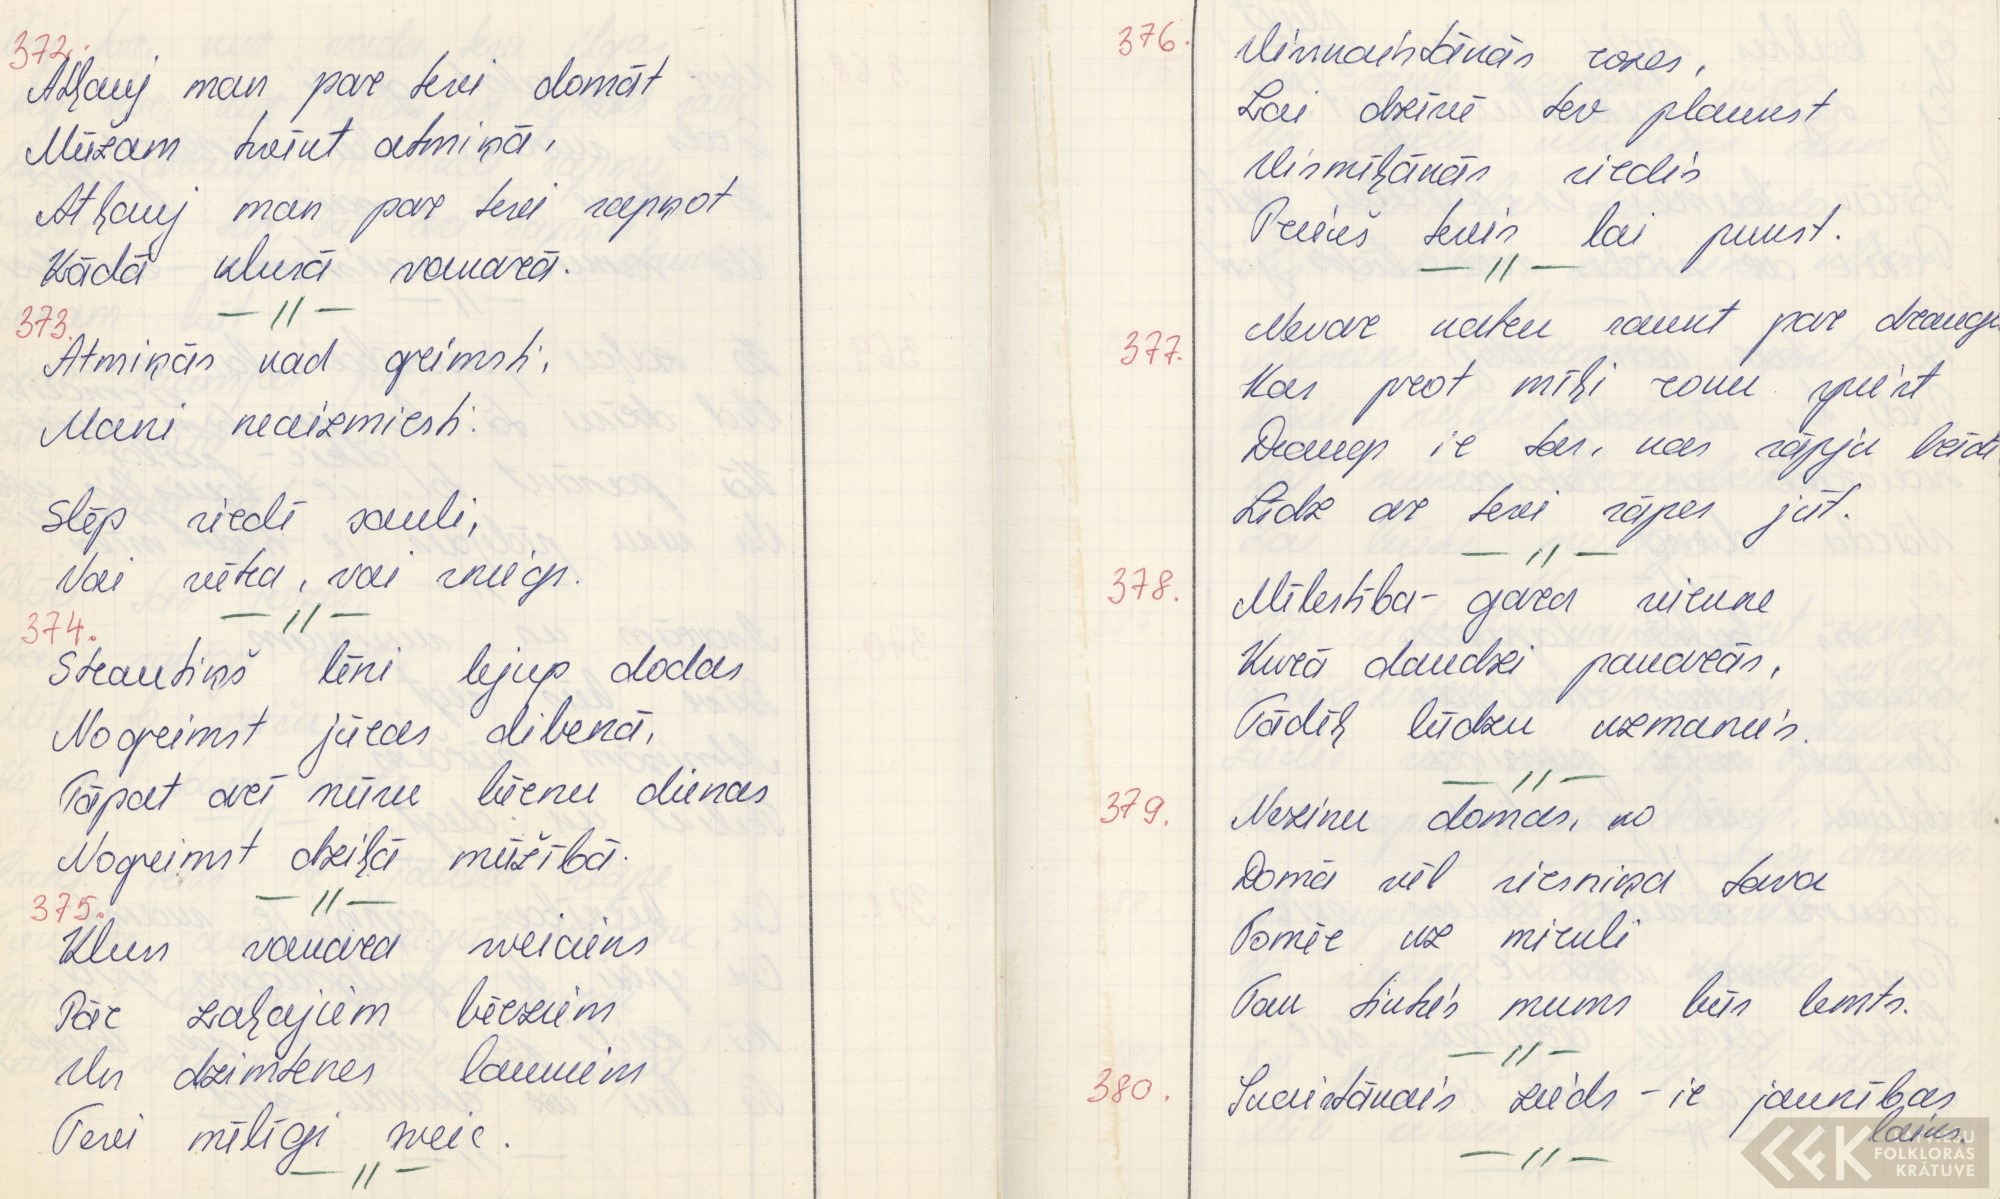 372.
Atļauj man par tevi domāt
Mūžam tvīkt atmiņā,
Atļauj man par tevi sapņot
Kādā klusā vakarā.
— // —
373.
Atmiņās kad grimsti,
Mani neaizmirsti.
Slēp sirdī sauli,
Vai vētra, vai sniegs.
— // —
374.
Strautiņš lēni lejup dodas
Nogrimst jūras dibenā,
Tāpat arī mūsu bērnu dienas
Nogrimst dziļā mūžībā.
— // —
375.
Kluss vakara sveiciens
Pār zaļajiem bērziem
Un dzimtenes laukiem
Tevi mīlīgi sveic.
— // —
376.
Visskaistākās rozes,
Lai dzīvē tev plaukst
Vismīļākās sirdis
Priekš tevis lai pukst.
— // —
377.
Nevar katru saukt par draugu
Kas prot mīļi roku spiest
Draugs ir tas, kas sāpju brīdī
Līdz ar tevi sāpes jūt.
— // —
378.
Mīlestība - gara virkne
Kurā daudzi pakarās,
Tādēļ lūdzu uzmanies.
— // —
379.
Nezinu domas, ko
Domā vēl sirsniņa tava
Tomēr uz mirkli
Tau tikties mums būs lemts.
— // —
380.
Skaistākais zieds - ir jaunības
laiks.
— // —
LFK
LATVIEŠU
FOLKLORAS
KRĀTUVE